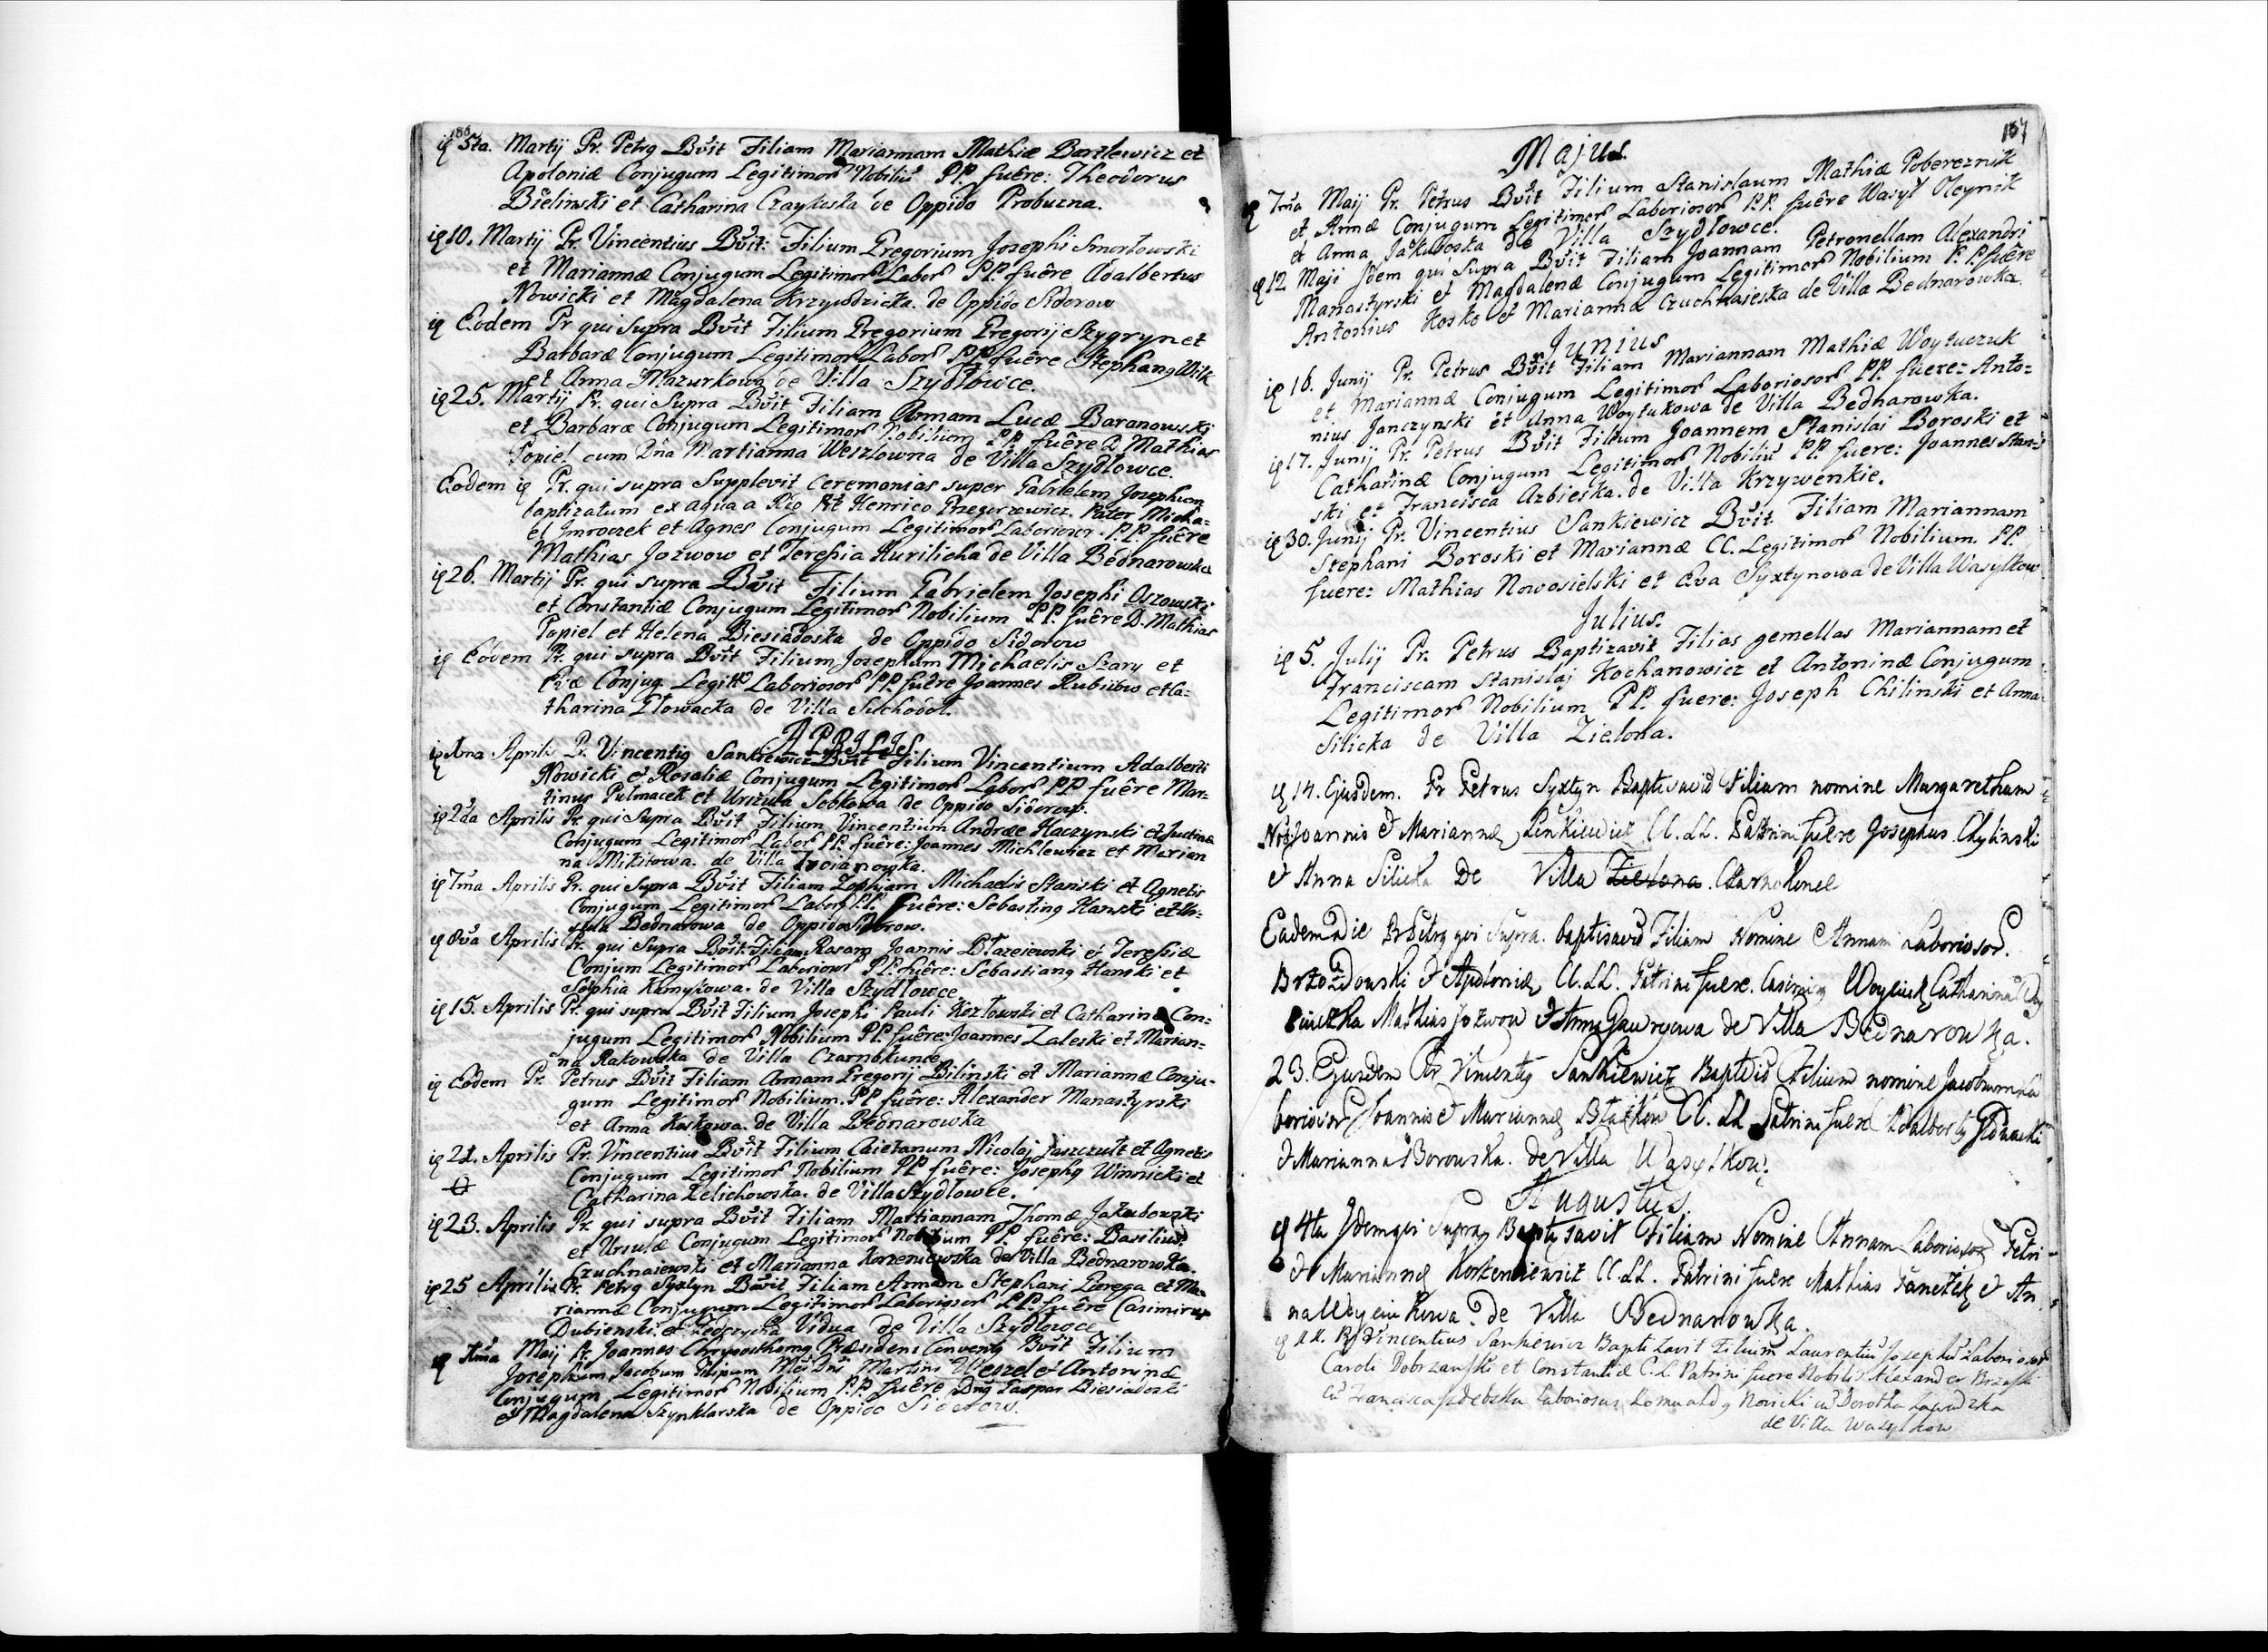 186
5ta. Martij Pr. Petrg Bvit Filiam Mariannam Mathiæ Barzlewicz et
Apoloniæ Conjugum Legitimor Nobiliu PP. fuêre: Theodorus
Bielinski et Catharina Czaykoska de Oppido Probuzna.
10. Martij Pr. Vincentius Bvit: Filium Gregorium Josephi Smorlowski
et Mariannæ Conjugum Legitimor Labor PP. fuêre Adalbertus
Nowicki et Magdalena Krzywdzicka. de Oppido Sidorow
Eodem Pr qui supra Bvit Filium Gregorium Gregorij Szygryn et
Barbaræ Conjugum Legitimor Labor PP. fuêre Stephang Wilk
et Anna Mazurkowa de Villa Szydlowce.
25. Martij Pr. qui supra Bvit Filiam Annam Lucæ Baranowski
et Barbaræ Conjugum Legitimor Nobilium PP. fuêre D. Mathias
Popiel cum Dna Martianna Weszlowna de Villa Szydlowce.
Eodem Pr. qui supra Supplevit Ceremonias super Gabrielem Josephum
baptizatum ex aqua a Henrico Grzegorzewicz. Pater Micha=
el Jmroczek et Agnes Conjugum Legitimor Laborioser P.P. fuêre
Mathias Jozwow et Teresia Kurilicha de Villa Bednarowka
26. Martij Pr. qui supra Bvit Filium Gabrielem Josephi Oszowski
et Constantiæ Conjugum Legitimor Nobilium P.P. fuêre D. Mathias
Popiel et Helena Biesiadoska de Oppido Sidorow
Eodem Pr. qui supra Bvit Filium Josephum Michaelis Szary et
Evæ Conjug. Legitt Laboriosor PP. fuêre Joannes Rubitow et Ca=
tharina Glowacka de Villa Suchodol.
APRILIS.
1ma Aprilis Pr. Vincentig Sankiewicz Bvit Filium Vincentium Adalberti
Nowicki et Rosaliæ Conjugum Legitimor Labor PP fuêre Mar=
tinus Pulmacek et Urszula Sobkowa de Oppido Sidorow.
2da Aprilis Pr. qui supra Bvit Filium Vincentium Andræe Haczynski et Justinæ
Conjugum Legitimor Labor PP. fuêre: Joannes Michlewicz et Marian
na Mikitowa. de Villa Troianowka.
7ma Aprilis Pr. qui supra Bvit Filiam Zophiam Michaelis Stanski et Agnetis
Conjugum Legitimor Labor PP. fuêre: Sebasting Hanski et Ur=
szula Bednarowa de Oppido Sidorow.
8va Aprilis Pr. qui supra Bvit Filiam Rosam Joannis Blazeiewski et Teresiæ
Conjum Legitimor Laboriosor PP. fuêre: Sebastiang Hanski et
Sophia Kamykowa. de Villa Szydlowce
15. Aprilis Pr. qui supra Bvit Filium Josephi Pauli Kozlowski et Catharinæ Con=
jugum Legitimor Nobilium PP. fuêre: Joannes Zaleski et Marian=
na Rakowska de Villa Czarnokunce
Eodem Pr. Petrus Bvit Filiam Annam Gregorij Bilinski et Mariannæ Conju-
gum Legitimor Nobilium. PP fuêre: Alexander Manastyrski
et Anna Koskowa. de Villa Bednarowka
21. Aprilis Pr. Vincentius Bvit Filium Caietanum Nicolaj Jaszczult et Agnetis
Conjugum Legitimor Nobilium PP fuêre: Josephg Winnicki et
Catharina Zelichowska. de Villa Szydlowce.
23. Aprilis Pr. qui supra Bvit Filiam Martiannam Thomæ Jakubowski
et Ursulæ Conjugum Legitimor Nobilium PP. fuêre: Basilius
Czuchnaiewski et Marianna Korzeniewska de Villa Bednarowka.
25 Aprilis Pr. Petrg Syxtyn Bvit Filiam Annam Stephani Gerega et Ma=
riannæ Conjugum Legitimor Laboriosor PP. fuêre Casimirus
Dubienski et Vidua de Villa Szydlowce
1ma Maij Pr. Joannes Chrysosthomg Præsidens Conventg Bvit Filium
Josephum Jacobum Filipum Martini Weszel et Antoninæ
Conjugum Legitimor Nobilium P.P. fuêre Dng Gaspar Biesiadoski
et Magdalena Szynklarska de Oppido Sidorow.
187
Majus.
7ma Maij Pr. Petrus Bvit Filium Stanislaum Mathiæ Pobereznik
et Annæ Conjugum Legitimor Laboriosor P.P. fuêre Wasyl Oleynik
et Anna Jakuboska de Villa Szydlowce.
12 Maji Jdem qui supra Bvit Filiam Joannam Petronellam Alexandri
Manastyrski et Magdalenæ Conjugum Legitimor Nobilium P.P. fuêre
Antonius Kosko et Marianna Czuchnaieska de Villa Bednarowka.
Junius
16. Junij Pr. Petrus Bvit Filiam Mariannam Mathiæ Woytuczuk
et Mariannæ Conjugum Legitimor Laboriosor PP. fuere: Anto=
nius Janczynski et Anna Woytukowa de Villa Bednarowka.
17. Junij Pr. Petrus Bvit Filium Joannem Stanislai Boroski et
Catharinæ Conjugum Legitimor Nobiliu PP. fuere: Joannes Stan=
ski et Francisca Arbieska. de Villa Krzywenkie.
30. Junij Pr. Vincentius Sankiewicz Bvit Filiam Mariannam
Stephani Boroski et Mariannæ CC. Legitimor Nobilium. PP.
fuere: Mathias Nowosielski et Eva Syxtynowa de Villa Wasylkow
Julius.
5. Julij Pr. Petrus Baptizavit Filias gemellas Mariannam et
Franciscam Stanislaj Kochanowicz et Antoninæ Conjugum
Legitimor Nobilium PP. fuere: Joseph Chilinski et Anna
Silicka de Villa Zielona.
14. Ejusdem. Pr Petrus Syxtyn Baptisavid Filiam nomine Margaretham
Joannis et Mariannæ Lenkiewicz CC. LL. Patrini fuêre Josephus Chylinski
et Anna Silicka De Villa Zielona. Czarnokonce
Eadem Die Pr Petrg qui Supra. baptisavid Filiam Nomine Annam Laboriosor.
Brzozdowski et Apoloniæ CC. LL. Patrini fuere. Casimirg Catharina
Mathias Jozwow et Anna Gawrycwa de Villa Bednarowka.
23. Ejusdem Pr Vincentg Sankiewicz Filium nomine Jacobum La
boriosor Joannis et Mariannæ CC. LL Patrini fuere Adalbertg
et Marianna Borowska. de Villa Wasylkow.
Augustus.
4ta Jdem qui Supra Baptysavit Filiam Nomine Annam Laboriosor Petri
et Mariannæ Korzeniewicz CC. LL. Patrini fuere Mathias Janczik et An
na Woyciukowa. de Villa Bednarowka.
11. Pr Vincentius Sankiewicz Baptizavit Filium Laurentiu Josephu Laboriosor
Caroli Dobrzanski et Constantiæ C.L. Patrini fuere Nobilis Alexander
cu Francisca Laboriosus Romualdg Nowicki cu Dorothea Zawadzka
de Villa Wasylkow